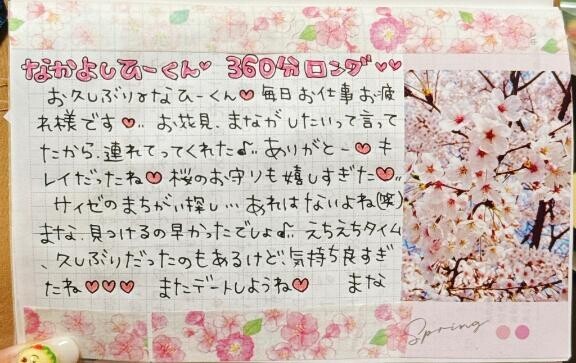 なかよしひーくん♡ 360分ロング♡♡
お久しぶりなひーくん♡毎日お仕事お疲
れ様です♡‥ お花見、まながしたいって言って
たから、連れてってくれた♪‥ ありがとー♡キ
レイだったね♡ 桜のお守りも嬉しすぎた♡‥
サイゼのまちがい探し… あれはないよね(笑)
まな、見つけるの早かったでしょ♪‥ えちえちタイム
、久しぶりだったのもあるけど、気持ち良すぎ
たね♡♡♡ またデートしようね♡ まな
Spring